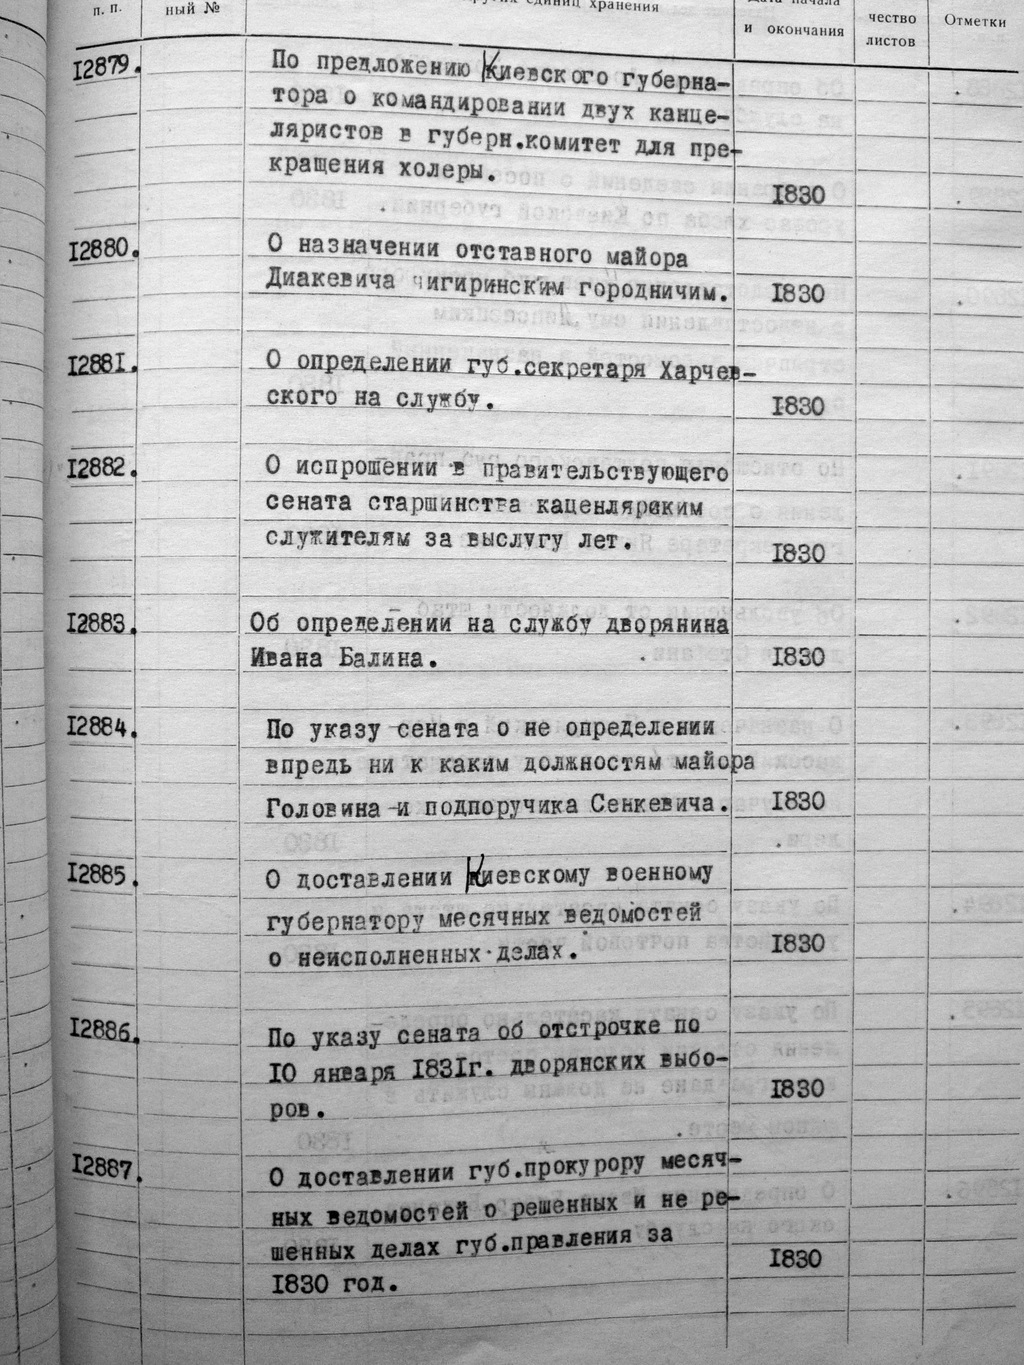 п. п.
ный №
единиц хранения
Дата начала
и окончания
чество
листов
Отметки
I2879.
По предложению Киевского губерна-
тора о командировании двух канце-
ляристов в губерн.комитет для пре-
кращения холеры.
I830
I2880.
О назначении отставного майора
Диакевича чигиринским городничим.
I830
I2881.
О определении губ.секретаря Харчев-
ского на службу.
I830
I2882.
О испрошении в правительствующего
сената старшинства каценлярским
служителям за выслугу лет.
I830
I2883.
Об определении на службу дворянина
Ивана Балина.
I830
I2884.
По указу сената о не определении
впредь ни к каким должностям майора
Головина и подпоручика Сенкевича.
I830
I2885.
О доставлении Киевскому военному
губернатору месячных ведомостей
о неисполненных делах.
I830
I2886.
По указу сената об отстрочке по
IO января I83Iг. дворянских выбо-
ров.
I830
I2887.
О доставлении губ.прокурору месяч-
ных ведомостей о решенных и не ре-
шенных делах губ.правления за
I830 год.
I830